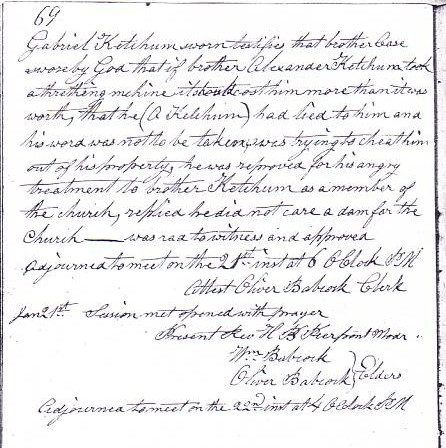 69
Gabriel Ketchum sworn testifies that brother Case
swore by God that if brother Alexander Ketchum took
a thrething mchine it would cost him more than it was
worth, that he (A Ketchum) had lied to him and
his word was not to be taken, was trying to cheat him
out of his property, he was reproved for his angry
treatment to brother Ketchum as a member of
the church, replied he did not care a dam for the
church — was rad to witness and approved
Adjourned to meet on the 21st inst at 6 O Clock P.M
Attest Oliver Babcock Clerk
Jan 21st. Session met opened with prayer
Present Rev H B Pierpont Modr.
Wm Babcock
Oliver Babcock } Elders
Adjourned to meet on the 22nd inst at 4 O Clock P.M